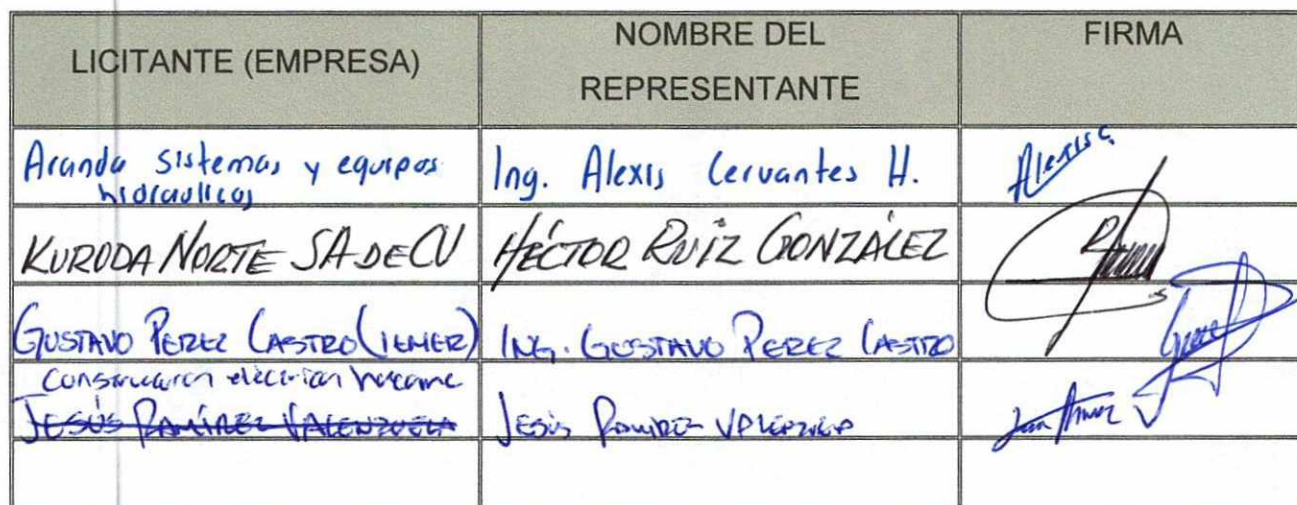 LICITANTE (EMPRESA)
NOMBRE DEL
REPRESENTANTE
FIRMA
Aranda sistemas y equipos
hidraulicos
Ing. Alexis Cervantes H.
Alexis C.
KURODA NORTE SA DE CV
HÉCTOR RUÍZ GONZÁLEZ
GUSTAVO PEREZ CASTRO (IEMER)
ING. GUSTAVO PEREZ CASTRO
JESÚS RAMÍREZ VALENZUELA
JESÚS RAMIREZ VALENZUELA